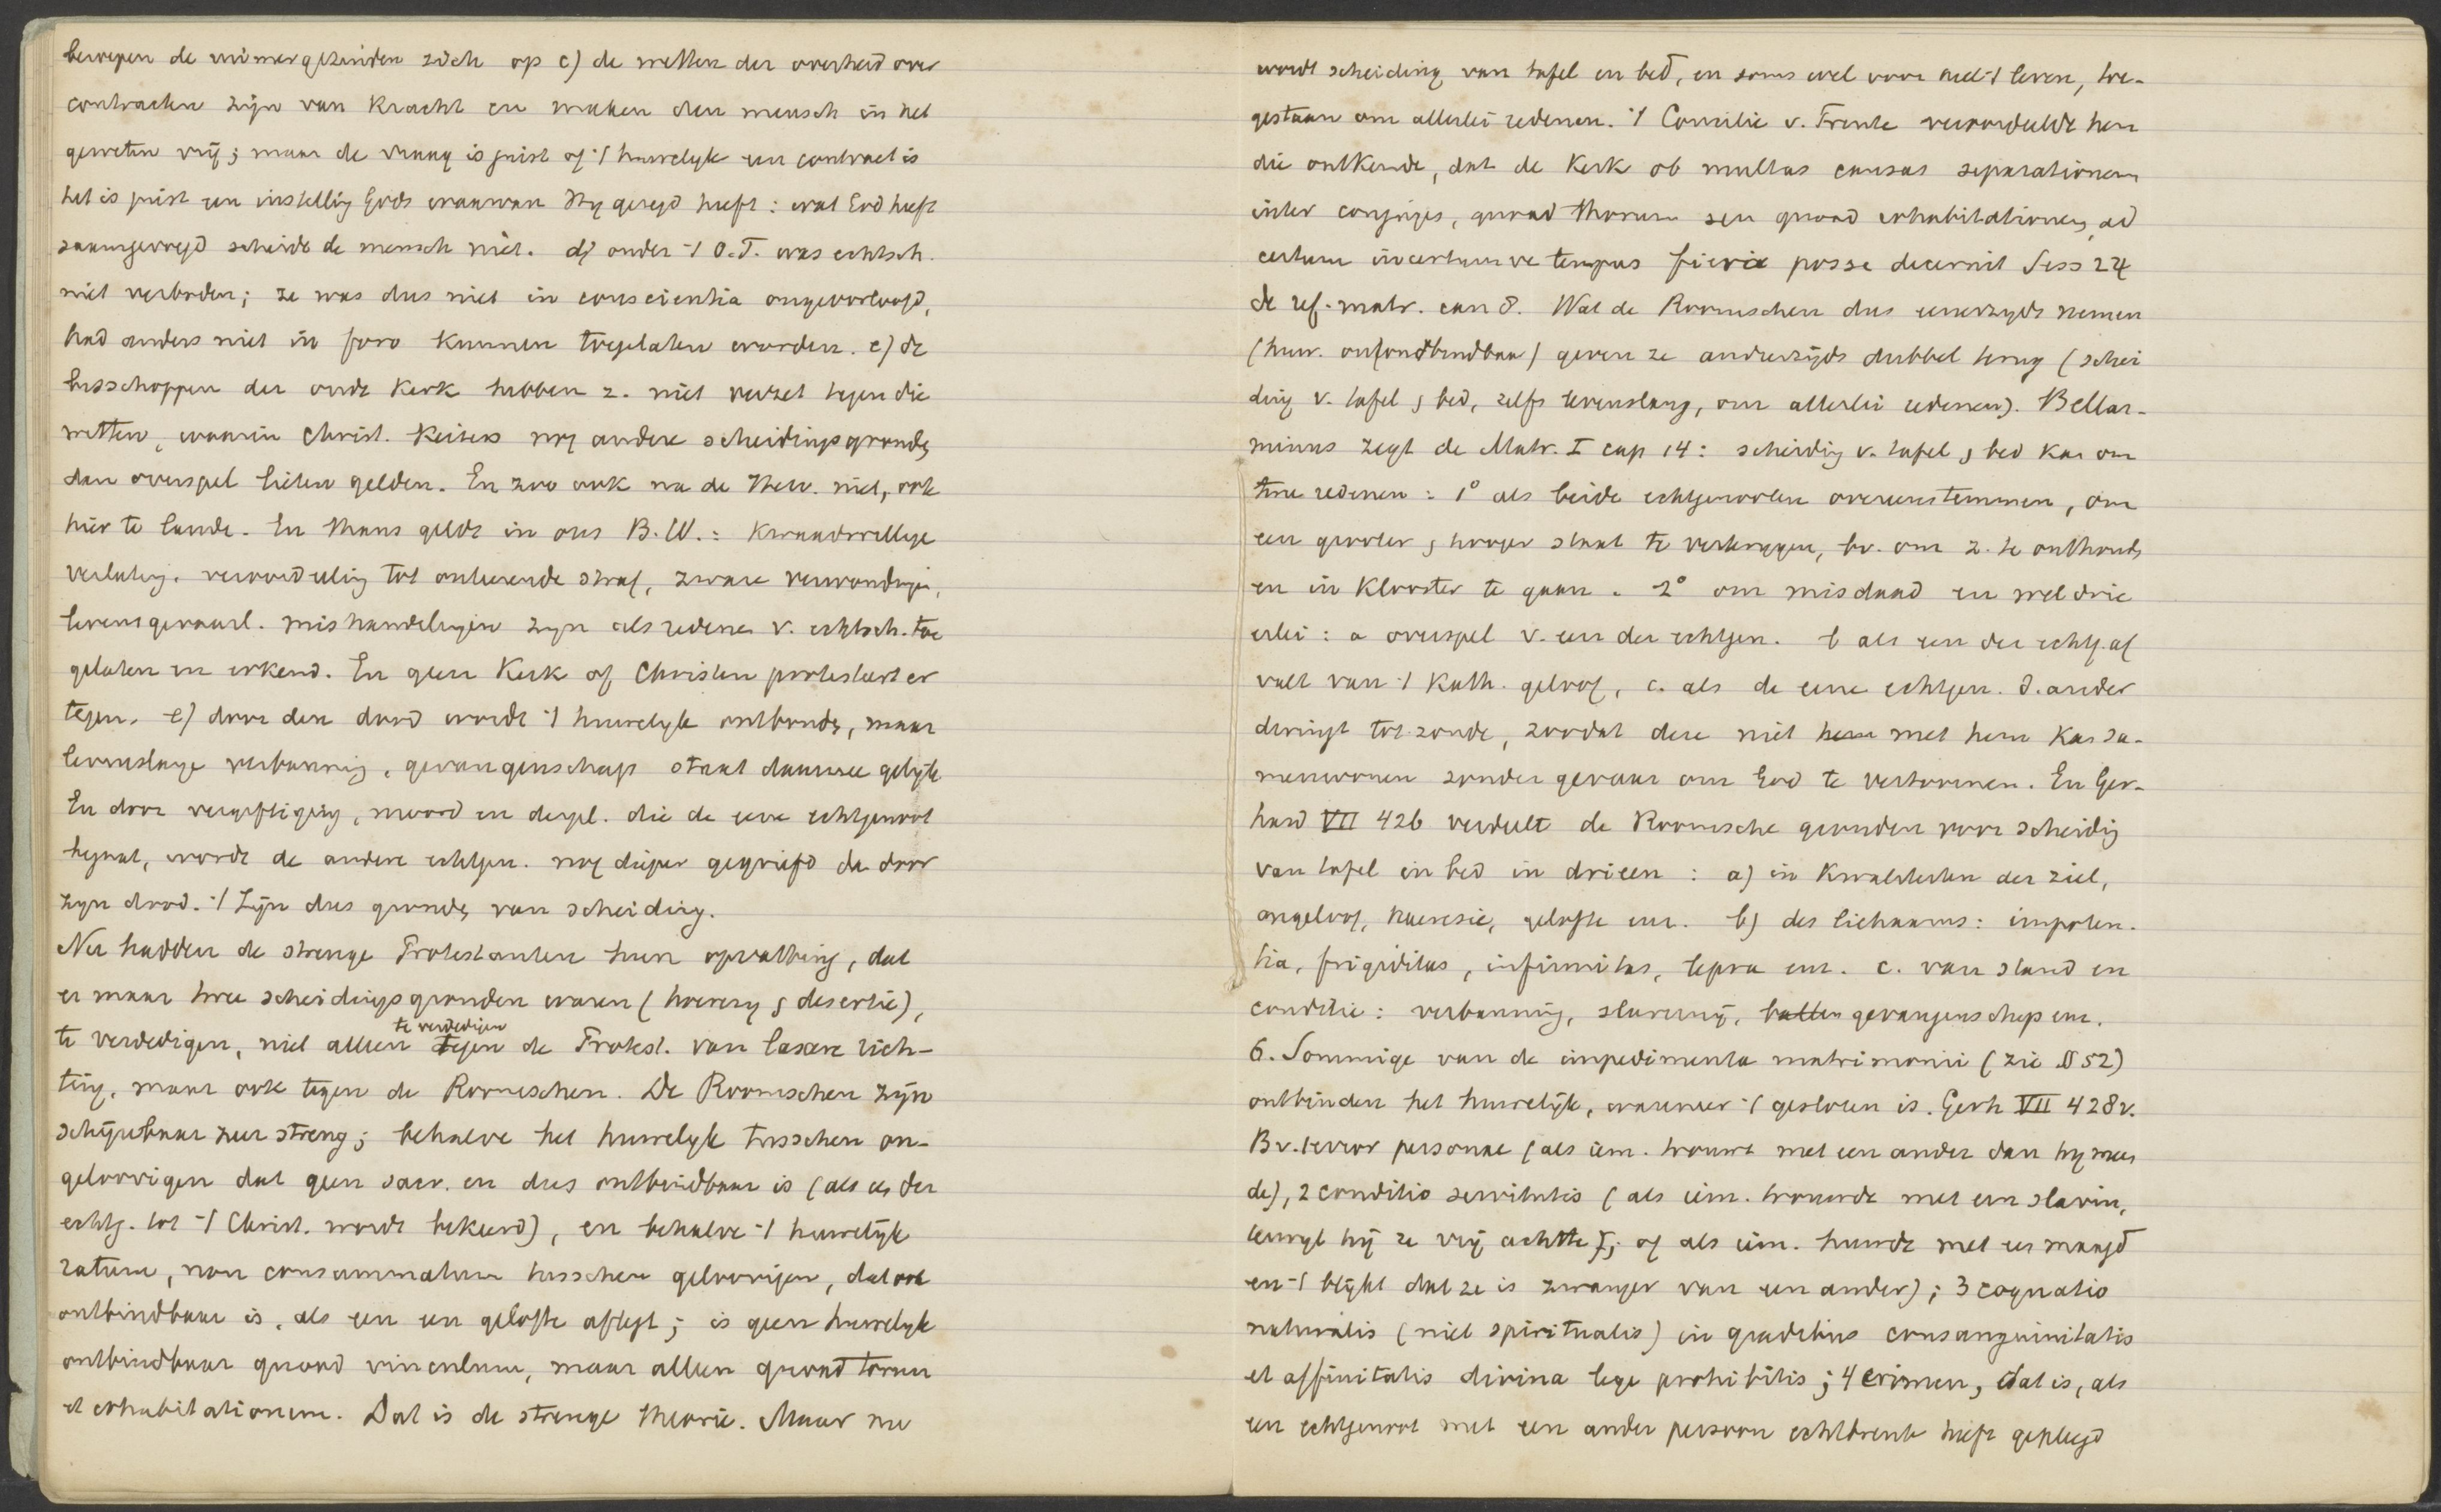 beroepen de ruimergezinden zich op c) de wetten der overheid over
contracten zijn van kracht en maken den mensch in het
geweten vrij; maar de vraag is juist of 't huwelyk een contract is
het is juist een instellig Gods waarvan Hy gezegd heeft: wat God heeft
saamgevoegd scheide de mensch niet. d) onder 't O.T. was echtsch.
niet verboden; ze was dus niet in conscientia ongeoorloofd,
had anders niet in foro kunnen toegelaten worden. e) de
bisschoppen der oude Kerk hebben z. niet verzet tegen die
wetten, waarin Christ. Keizers nog andere scheidingsgronde,
dan overspel lieten gelden. En zoo ook na de Ref. niet, ook
hier te lande. En thans geldt in ons B.W.: Kwaadwillige
verlatig, veroordeelig tot onteerende straf, zware verwondigi,
levensgevaarl. mishandelingen zyn als redene v. echtsch. toe
gelaten en erkend. En geen Kerk of Christen protesteert er
tegen. e) door den dood wordt 't huwelyk ontbonde, maar
levenslange verbannig, gevangenschap staat daarmee gelyk
En door vergiftiging, moord en dergl. die de eene echtgenoot
begaat, wordt de andere echtgen. nog dieper gegriefd da door
zyn dood. 't Zijn dus gronde, van scheiding.
Nu hadden de strenge Protestanten hun opvatting, dat
er maar twee scheidingsgronden waren (hoerery & desertie),
te verdedigen, niet alleen te verdedigen tegen de Protest. van laxere rich-
tig, maar ook tegen de Roomschen. De Roomschen zijn
schijnbaar zeer streng; behalve het huwelyk tusschen on-
geloovigen dat geen sacr. en dus ontbindbaar is (als ee der
echtg. tot 't Christ. wordt bekeerd), en behalve 't huwelijk
ratum, non consummatum tusschen geloovigen, dat ook
ontbindbaar is, als een een gelofte aflegt; is geen huwelyk
ontbindbaar quoad vinculum, maar alleen quoad torum
et cohabitationem. Dat is de strenge theorie. Maar nu
wordt scheiding van tafel en bed, en soms wel voor heel 't leven, toe-
gestaan om allerlei redenen. 't Concilie v. Trente veroordeelde hen
die ontkende, dat de Kerk ob multas causas separationem
inter conjuges, quoad thorum seu quoad cohabitationem, ad
certum incertumve tempus fieri posse decernit Sess 24
de ref. matr. can 8. Wat de Roomschen dus eenerzyds nemen
(huw. onontbindbaar) geven ze anderzijds dubbel terug (schei
ding v. tafel & bed, zelfs levenslang, om allerlei redenen). Bellar-
minus zegt de Matr. I cap 14: scheidig v. tafel & bed kan om
twee redenen: 1° als beide echtgenooten overeenstemmen, om
een grooter & hooger staat te verkrygen, bv. om z. te onthoude,
en in Klooster te gaan. 2° om misdaad en wel drie
erlei: a overspel v. een der echtgen. b als een der echtg. af
valt van 't Kath. geloof, c. als de eene echtgen. d. ander
dringt tot zonde, zoodat deze niet hem met hem Kan sa-
menwonen zonder gevaar om God te vertoornen. En Ger-
hard VII 426 verdeelt de Roomsche gronden voor scheidig
van tafel en bed in drieen: a) in Kwaliteiten der ziel,
ongeloof, haeresie, gelofte enz. b) des lichaams: impoten-
tia, frigiditas, infirmitas, lepra enz. c. van stand en
conditie: verbannig, slaverny, ballin gevangenschap enz.
6. Sommige van de impedimenta matrimonii (zie § 52)
ontbinden het huwelijk, wanneer 't gesloten is. Gerh VII 428v.
Bv. 1 error personae (als iem. trouwt met een ander dan hy meen
de), 2 conditio servitutis (als iem. trouwde met een slavin,
terwyl hij ze vrij achtte); of als iem. huwde met ee maagd
en 't blykt dat ze is zwanger van een ander); 3 cognatio
naturalis (niet spiritualis) in gradibus consanguinitatis
et affinitatis divina lege prohibitis; 4 crimen, dat is, als
een echtgenoot met een ander persoon echtbreuk heeft gepleegd